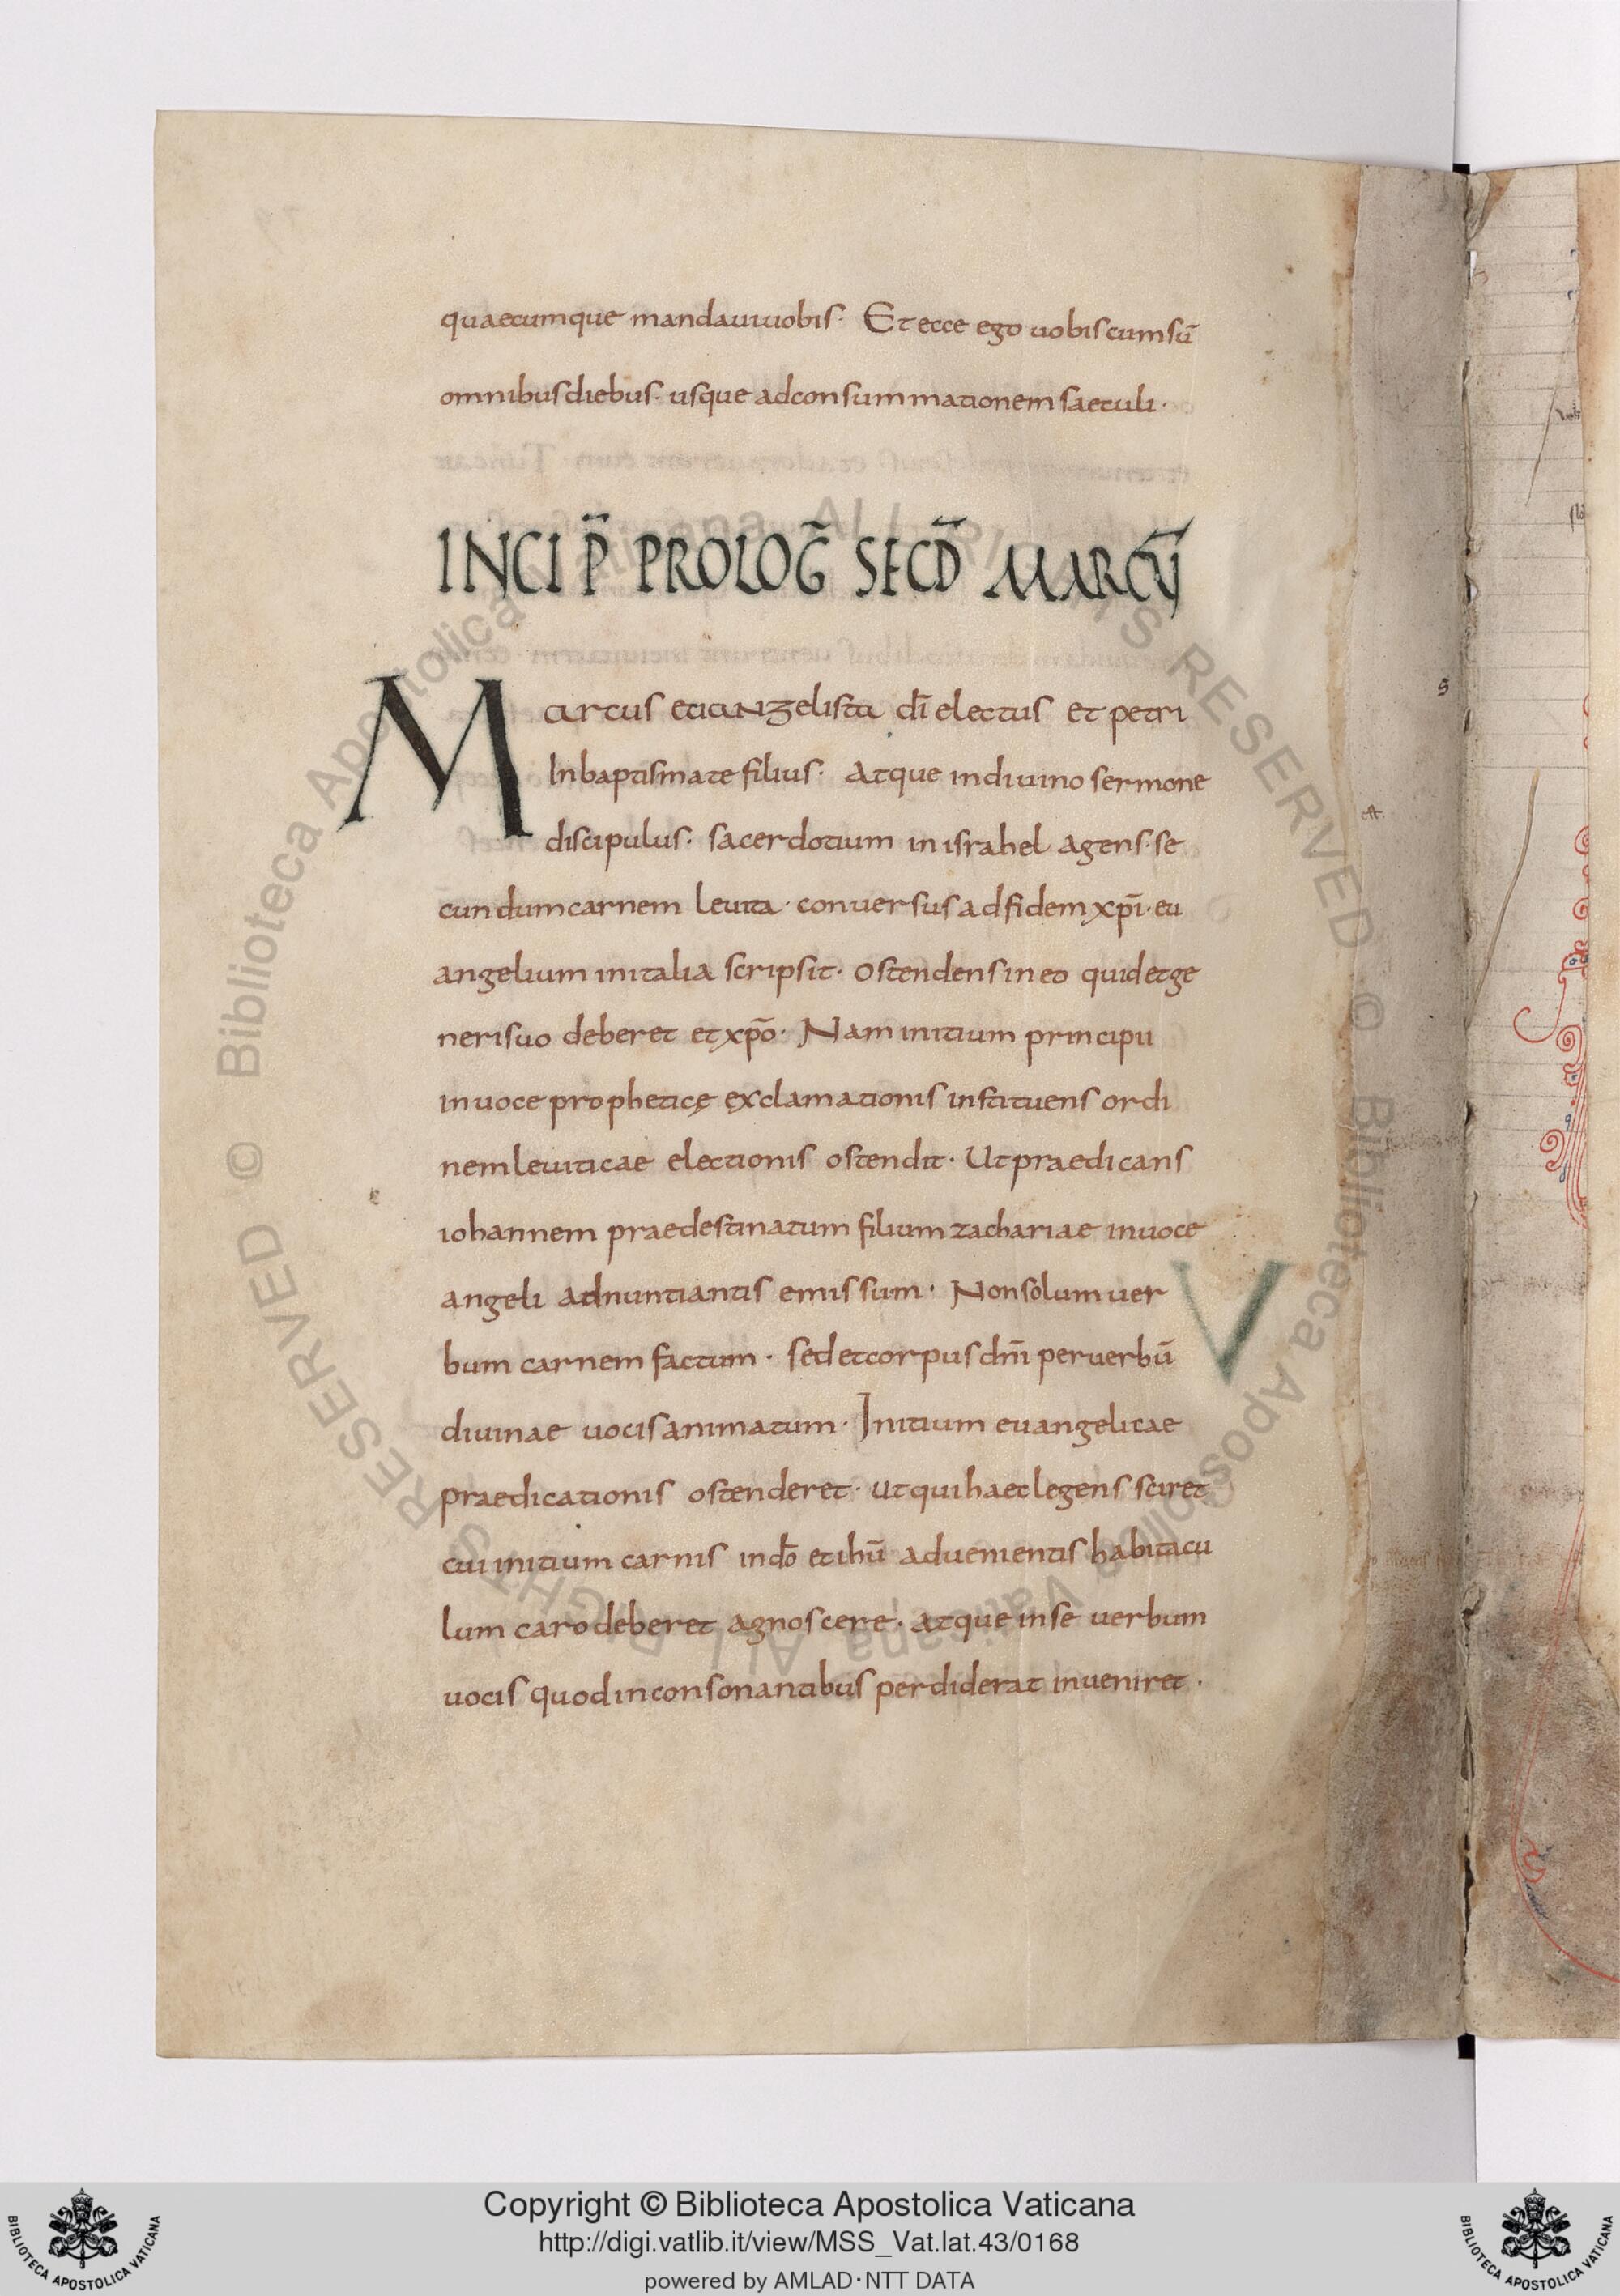 quaecumque mandaui uobis· Et ecce ego uobiscum sū
omnibus diebus· usque ad consummationem saeculi·
INCIP̄ PROLOḠ SECD̄ MARCŪ
Marcus euangelista dī electus et petri
In baptismate filius· Atque in diuino sermone
discipulus· sacerdotium in israhel agens· se
cundum carnem leuita· conuersus ad fidem xpī· eu
angelium in italia scripsit· ostendens in eo quid et ge
neri suo deberet et xpō· Nam initium principii
in uoce propheticę exclamationis instituens ordi
nem leuiticae electionis ostendit· Ut praedicans
iohannem praedestinatum filium zachariae in uoce
angeli adnuntiantis emissum· Non solum uer
bum carnem factum· sed et corpus dn̄i per uerbū
diuinae uocis animatum· Initium euangelicae
praedicationis ostenderet· ut qui haec legens sciret
cui initium carnis in dō et ihū aduenientis habitacu
lum caro deberet agnoscere· atque in se uerbum
uocis quod in consonantibus perdiderat inueniret·
V
© Biblioteca Apostolica Vaticana ALL RIGHTS RESERVED © Biblioteca Apostolica Vaticana ALL RIGHTS RESERVED
Copyright © Biblioteca Apostolica Vaticana
http://digi.vatlib.it/view/MSS_Vat.lat.43/0168
powered by AMLAD·NTT DATA
BIBLIOTECA APOSTOLICA VATICANA
BIBLIOTECA APOSTOLICA VATICANA